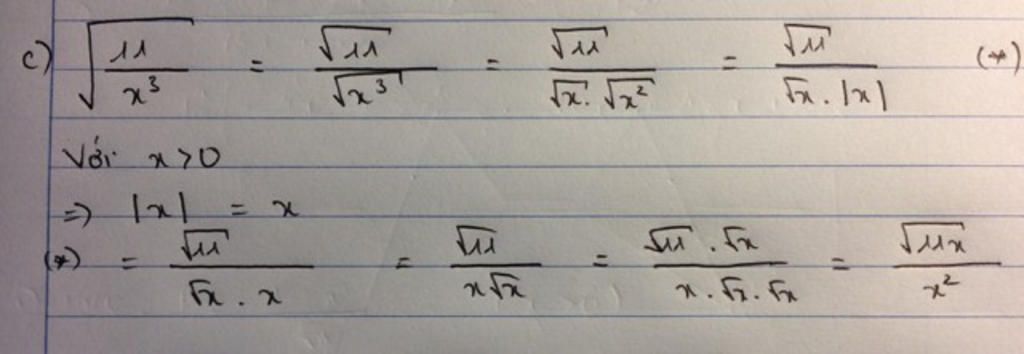 c) √(11/x³) = √11/√x³ = √11/(√x . √x²) = √11/(√x . |x|) (*)
Với x > 0
=) |x| = x
(*) = √11/(√x . x) = √11/(x√x) = (√11 . √x)/(x . √x . √x) = √11x/x²